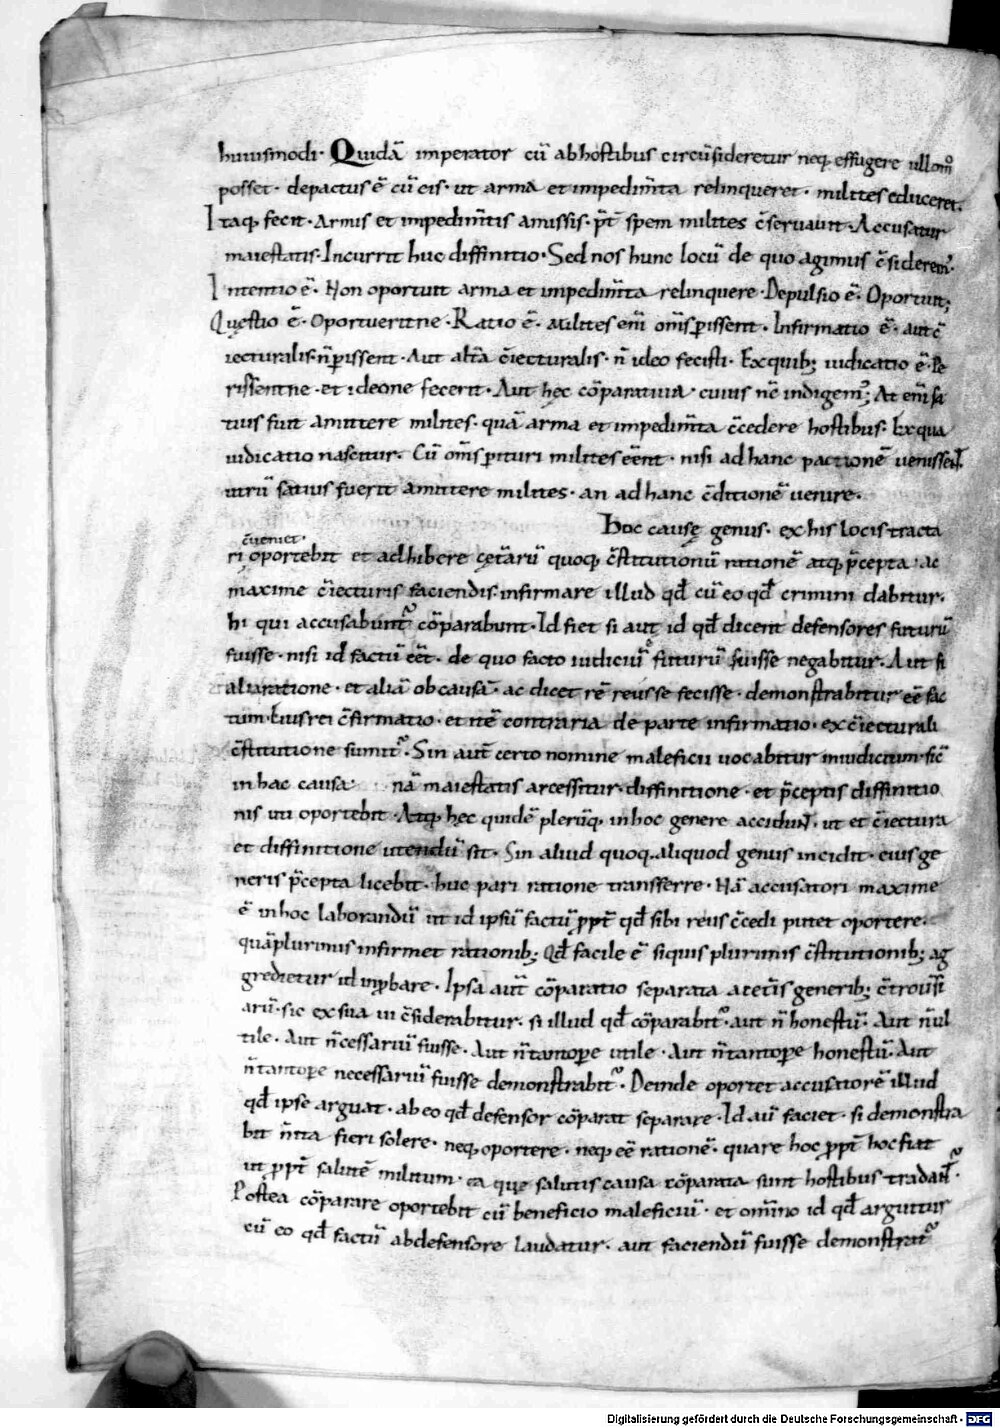 huiusmodi· Quidā imperator cū ab hostibus circūsideretur neq; effugere ullom̊
posset· depactus ē cū eis· ut arma et impedim̄ta relinqueret· milites educeret.
Itaq; fecit· Armis et impedim̄tis amissis· p̄t spem milites c̄servavit· Accusatur
maiestatis· Incurrit huc diffinitio· Sed nos hunc locū de quo agimus c̄siderem;
Intentio ē· Non oportuit arma et impedim̄ta relinquere· Depulsio ē· Oportuit;
Quęstio ē· Oportueritne· Ratio ē· Milites enī om̄s perissent· Infirmatio ē· aut c̄
iecturalis· n̄ perissent· Aut alt̄a c̄iecturalis· n̄ ideo fecisti· Ex quib; iudicatio ē· Pe
rissentne· et ideone fecerit· Aut hęc cōparativa· cuius nc̄ indigem; At enī sa
tius fuit amittere milites· quā arma et impedim̄ta c̄cedere hostibus· Ex qua
iudicatio nascitur· Cū om̄s perituri milites eēnt· nisi ad hanc pactionē venissent
utrū satius fuerit amittere milites· an ad hanc c̄ditionē venire·
Hoc causę genus· ex his locis tracta
c̄veniet·
ri oportebit et adhibere cęt̄arū quoq; c̄stitutionū rationē atq; p̄cepta· ac
maxime c̄iecturis faciendis· infirmare illud qd̄ cū eo qd̄ crimini dabitur·
hi qui accusabunt̄ cōparabunt· Id fiet si aut id qd̄ dicent defensores futurū
fuisse· nisi id factū eēt· de quo facto iudiciū futurū fuisse negabitur· Aut si
alia ratione· et aliā ob causā· ac dicet rē reus se fecisse· demonstrabitur eē fac
tum· Eius rei c̄firmatio· et itē contraria de parte infirmatio· ex c̄iecturali
c̄stitutione sumit̄· Sin aut̄ certo nomine maleficii vocabitur in iudicium· sic̄
in hac causa· nā maiestatis arcessitur· diffinitione· et p̄ceptis diffinitio
nis uti oportebit· Atq; hęc quidē plerūq; in hoc genere accidunt· ut et c̄iectura
et diffinitione utendū sit· Sin aliud quoq; aliquod genus incidit· eius ge
neris p̄cepta licebit· huc pari ratione transferre· Nā accusatori maxime
ē in hoc laborandū ut id ipsū factū ppt̄ qd̄ sibi reus c̄cedi putet oportere·
quā plurimis infirmet rationib; Qd̄ facile ē si quis plurimis c̄stitutionib; ag
gredietur id inprobare· Ipsa aut̄ cōparatio separata a cet̄is generib; c̄trov̄si
arū· sic ex sua vi c̄siderabitur· si illud qd̄ cōparabit̄· aut n̄ honestū· Aut n̄ ul
tile· Aut n̄ cessariū fuisse· Aut n̄ tantopere utile· Aut n̄ tantopere honestū· Aut
n̄ tantopere necessariū fuisse demonstrabit̄· Deinde oportet accusatorē illud
qd̄ ipse arguat· ab eo qd̄ defensor cōparat separare· Id aū faciet· si demonstra
bit n̄ ita fieri solere· neq; oportere· neq; eē rationē· quare hoc ppt̄ hoc fiat
ut ppt̄ salutē militum· ea quę salutis causa cōparata sunt hostibus tradant̄·
Postea cōparare oportebit cū beneficio maleficiū· et om̄ino id qd̄ arguitur
cū eo qd̄ factū ab defensore laudatur· aut faciendū fuisse demonstrat̄
Digitalisierung gefördert durch die Deutsche Forschungsgemeinschaft - DFG